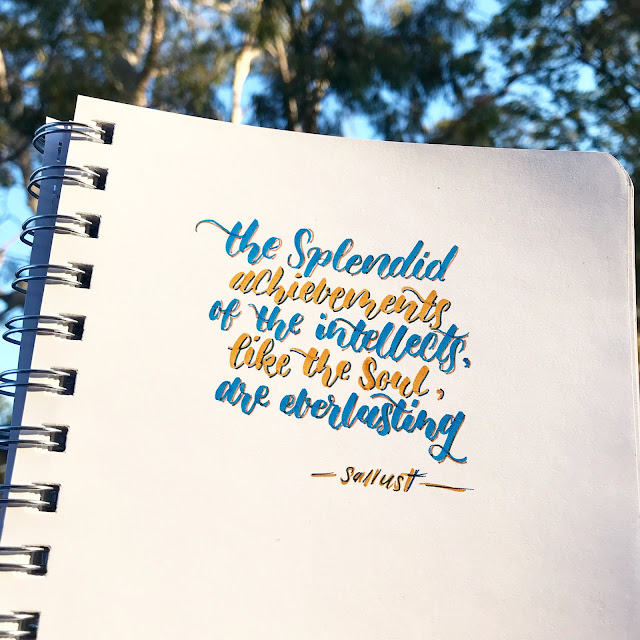 the Splendid
achievements
of the intellects,
like the Soul,
are everlasting
— sallust —